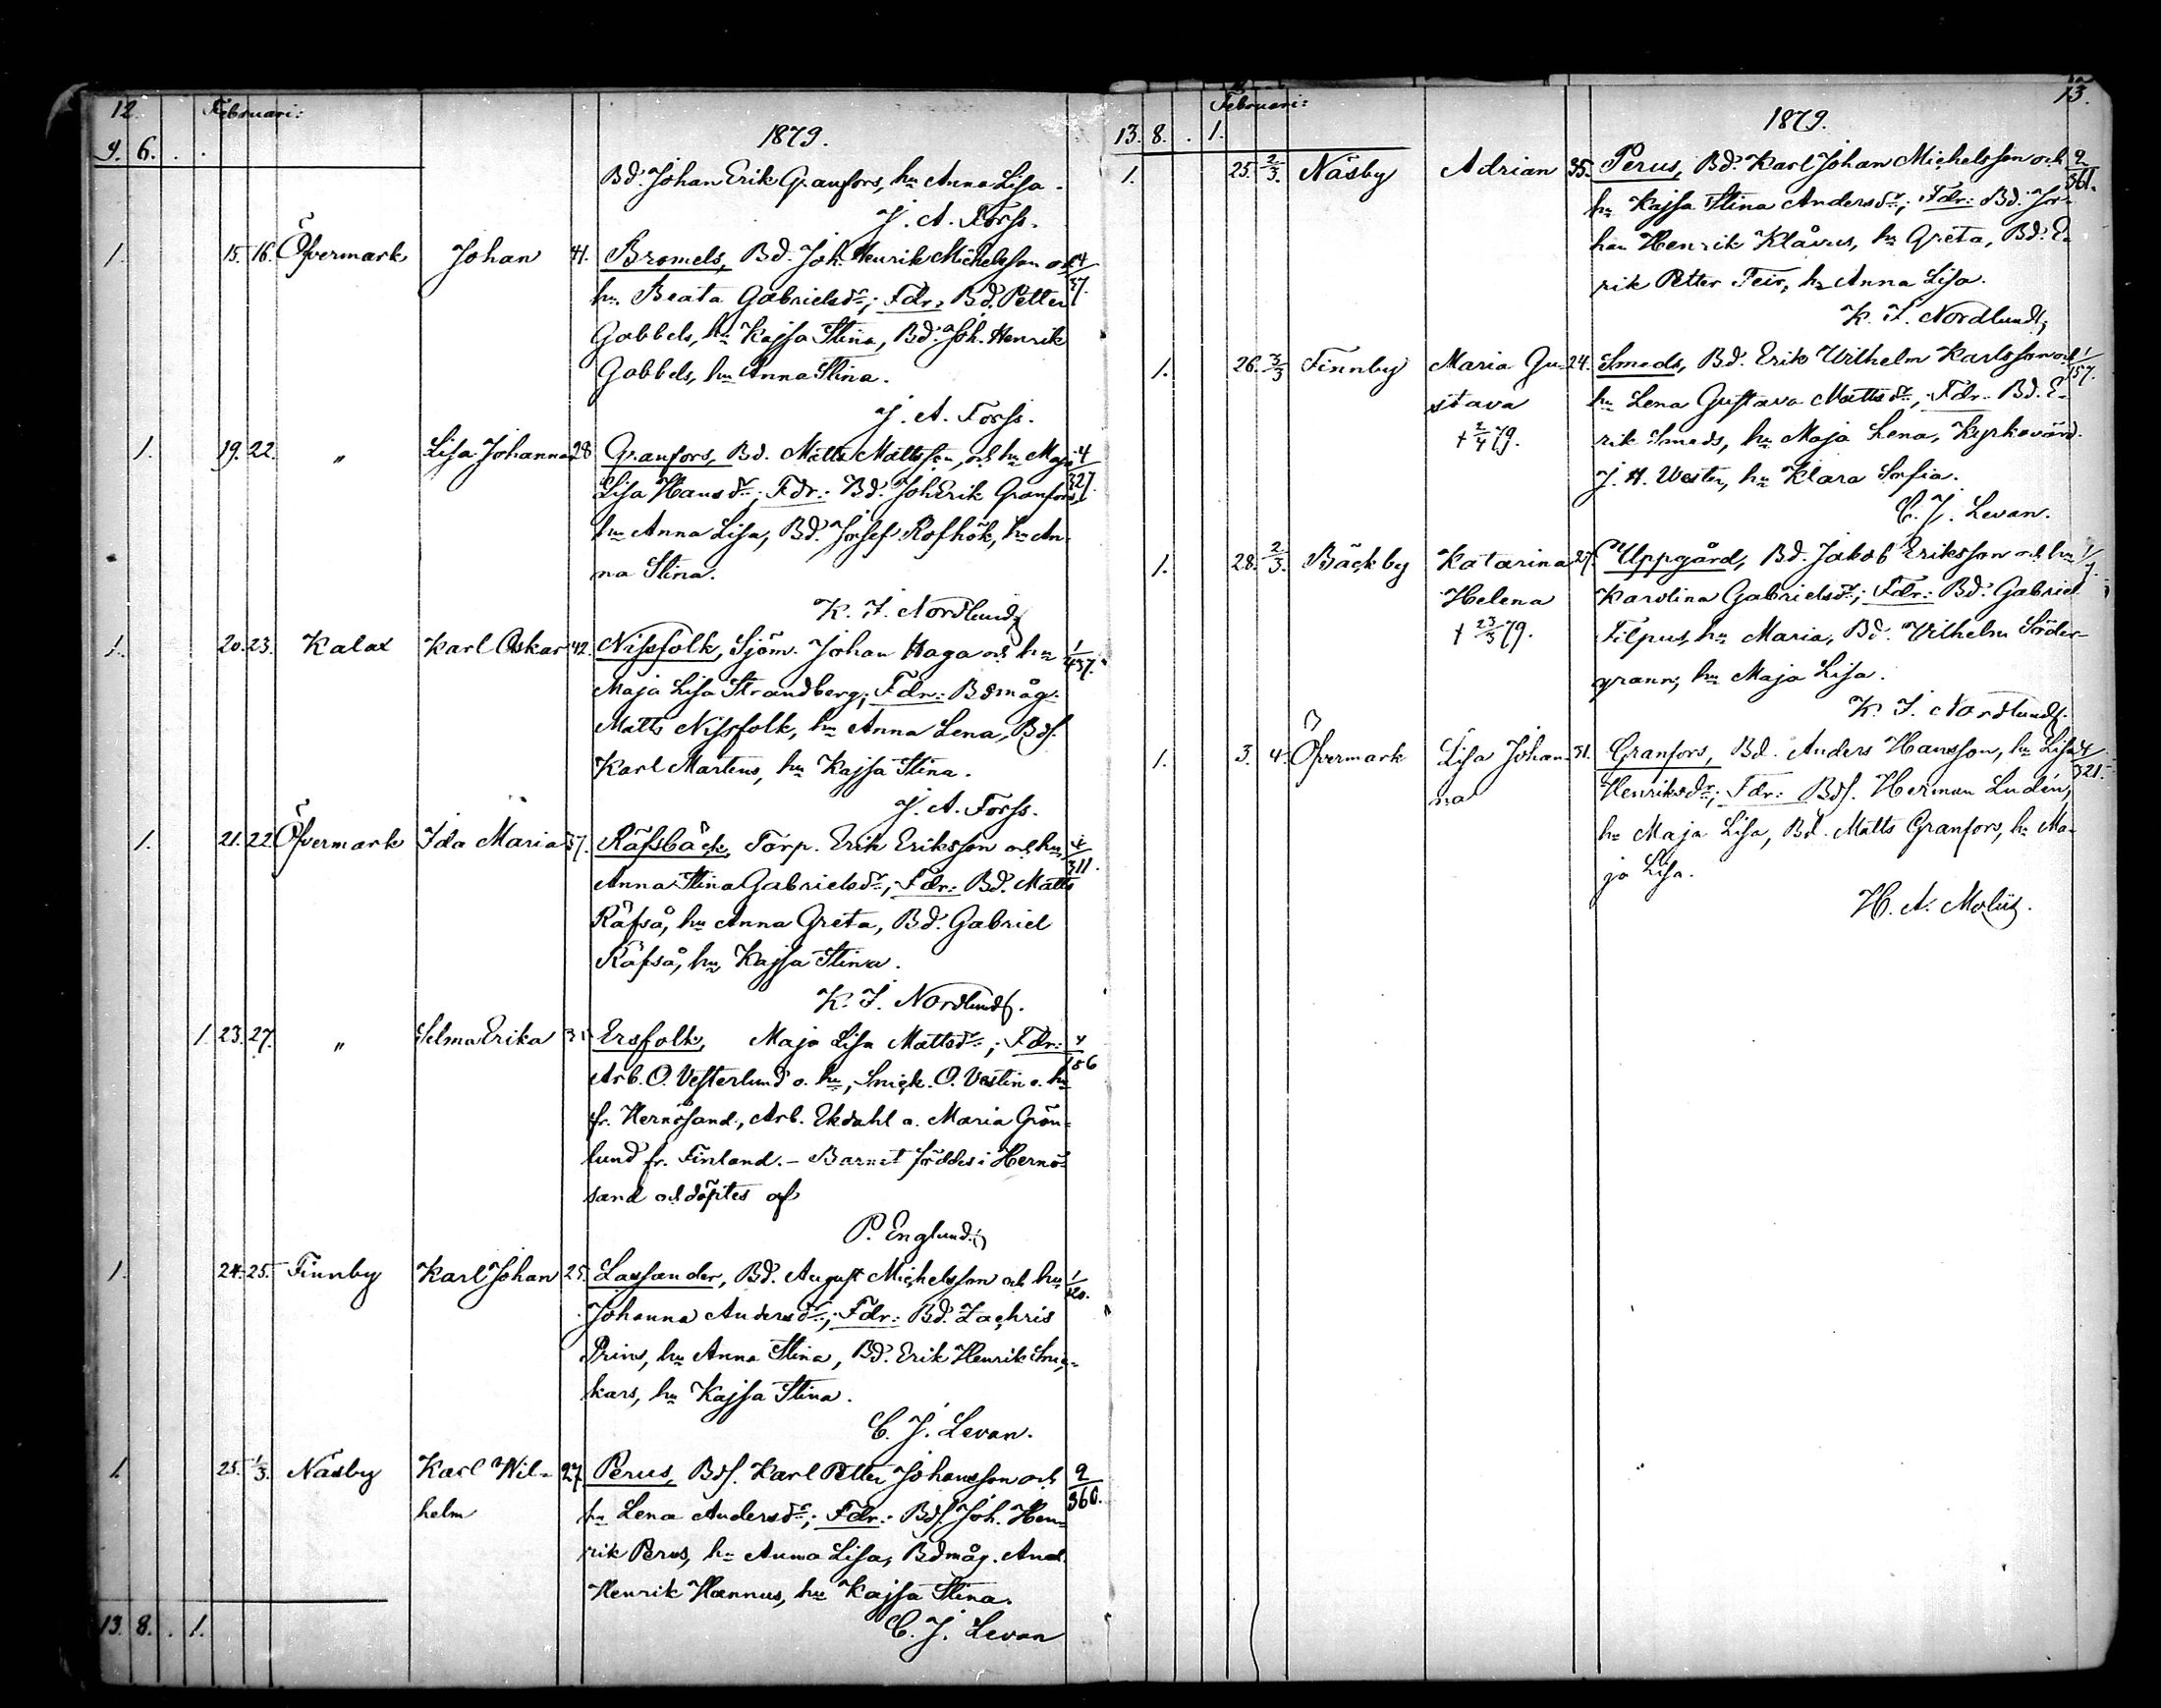 12. Februari:
1879.
9. 6. . .
Bd. Johan Erik Granfors, hu Anna Lisa.
J. A. Forss.
1. 15. 16. Öfvermark Johan 41. Bromels, Bd. Joh. Henrik Michelsson och 4/37.
hu Beata Gabrielsdr; Fdr: Bd. Petter
Gabbels, hu Kajsa Stina, Bd. Joh. Henrik
Gabbels, hu Anna Stina.
J. A. Forss.
1. 19. 22. " Lisa Johanna 28 Granfors, Bd. Matts Mattsson, och hu Maja 4/327.
Lisa Hansdr; Fdr: Bd. Joh Erik Granfors,
hu Anna Lisa, Bd. Josef Rofhök, hu An-
na Stina.
K. J. Nordlund
1. 20. 23. Kalax Karl Oskar 42. Nissfolk, Sjöm. Johan Haga och hu 1/437.
Maja Lisa Strandberg; Fdr: Bdmåg.
Matts Nissfolk, hu Anna Lena, Bds.
Karl Martens, hu Kajsa Stina.
J. A. Forss.
1. 21. 22. Öfvermark Ida Maria 37. Räfsbäck, Torp. Erik Eriksson och hu 4/311.
Anna Stina Gabrielsdr; Fdr: Bd. Matts
Räfså, hu Anna Greta, Bd. Gabriel
Räfså, hu Kajsa Stina.
K. J. Nordlund.
1 23. 27. " Selma Erika 31 Ersfolk, Maja Lisa Mattsdr; Fdr: 4/186
Arb. O. Vesterlund o. hu, Snick. O. Vestin o. hu
fr. Hernösand, Arb. Ekdahl o. Maria Grön-
lund fr. Finland. – Barnet föddes i Hernö-
sand och döptes af
P. Englund.
1. 24. 25. Finnby Karl Johan 25. Lassander, Bd. August Michelsson och hu 1/120.
Johanna Andersdr; Fdr: Bd. Zachris
Prins, hu Anna Stina, Bd. Erik Henrik Snic-
kars, hu Kajsa Stina.
C. J. Levan.
1. 25. 1/3. Näsby Karl Wil- 27. Perus, Bds. Karl Petter Johansson och 2/360.
helm hu Lena Andersdr; Fdr: Bds. Joh. Hen-
rik Perus, hu Anna Lisa, Bdmåg. And.
Henrik Hannus, hu Kajsa Stina.
C. J. Levan
13. 8. . 1.
Februari: 13.
1879.
13. 8. . 1.
1. 25. 2/3. Näsby Adrian 35. Perus, Bd. Karl Johan Michelsson och 2/361.
hu Kajsa Stina Andersdr; Fdr: Bd. Jo-
han Henrik Klåvus, hu Greta, Bd. E-
rik Petter Feir, hu Anna Lisa.
K. J. Nordlund
1. 26. 3/3 Finnby Maria Gu- 24. Smeds, Bd. Erik Wilhelm Karlsson och 1/157.
stava hu Lena Gustava Mattsdr; Fdr: Bd. E-
† 2/4 79. rik Smeds, hu Maja Lena, Kyrkovärd.
J. H. Wester, hu Klara Sofia.
C. J. Levan.
1. 28. 2/3. Bäckby Katarina 27. Uppgård, Bd. Jakob Eriksson och hu 1/7.
Helena Karolina Gabrielsdr; Fdr: Bd. Gabriel
† 23/3 79. Filpus, hu Maria, Bd. Vilhelm Söder-
grann, hu Maja Lisa.
K. J. Nordlund.
1. 3. 4. Öfvermark Lisa Johan- 31. Granfors, Bd. Anders Hansson, hu Lisa 4/321.
na Henriksdr; Fdr: Bds. Herman Ludén,
hu Maja Lisa, Bd. Matts Granfors, hu Ma-
ja Lisa.
H. A. Moliis.